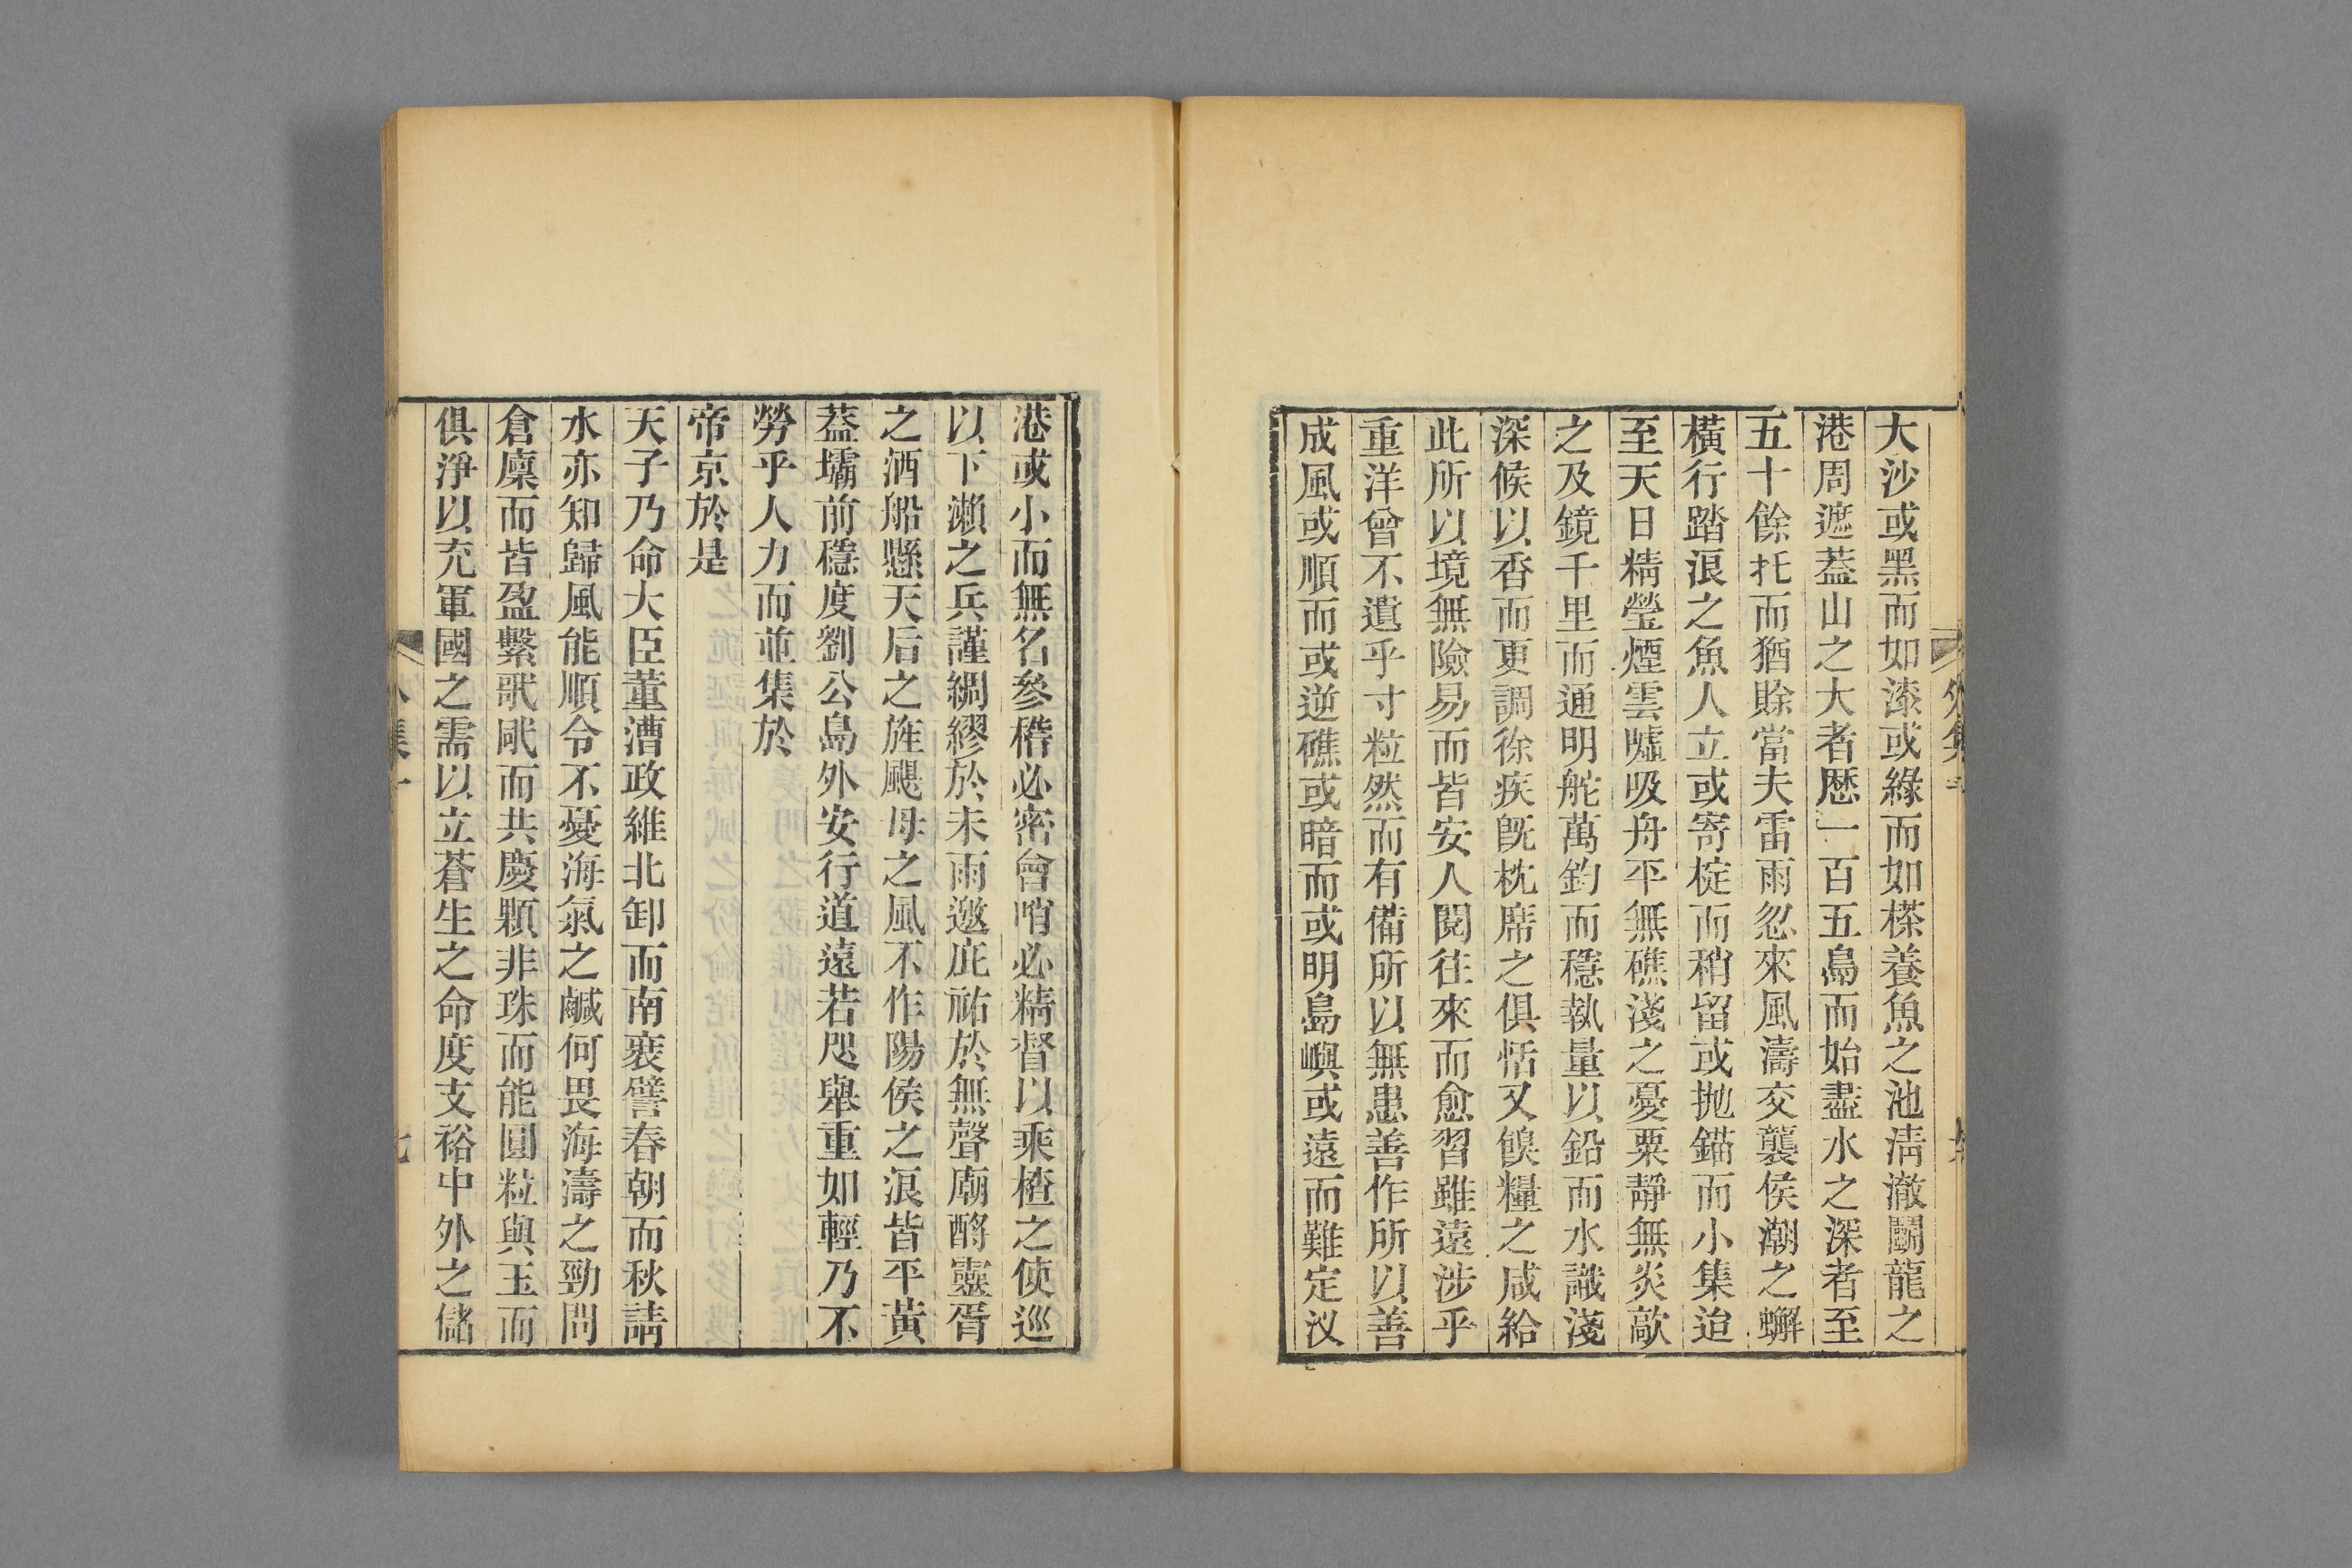 大沙或黑而如漆或綠而如㯶養魚之池淸澈鬭龍之
港周遮葢山之大者歷一百五島而始盡水之深者至
五十餘托而猶賒當夫雷雨忽來風濤交襲侯潮之蠏
橫行踏浪之魚人立或寄椗而稍留或拋錨而小集迨
至天日精瑩煙雲噓吸舟平無礁淺之憂粟靜無炎歊
之及鏡千里而通明舵萬鈞而穩執量以鉛而水識淺
深候以香而更調徐疾旣枕席之俱恬又餱糧之咸給
此所以境無險易而皆安人閱往來而愈習雖遠涉乎
重洋曾不遺乎寸粒然而有備所以無患善作所以善
成風或順而或逆礁或暗而或明島嶼或遠而難定汊
港或小而無名參稽必密會哨必精督以乘楂之使巡
以下瀨之兵謹綢繆於未雨邀庇祐於無聲廟酹靈胥
之酒船懸天后之旌颶母之風不作陽侯之浪皆平黃
葢壩前穩度劉公島外安行道遠若咫舉重如輕乃不
勞乎人力而並集於
帝京於是
天子乃命大臣董漕政維北卸而南裝譬春朝而秋請
水亦知歸風能順令不憂海氣之鹹何畏海濤之勁問
倉廩而皆盈繫歌㽬而共慶顆非珠而能圓粒與玉而
俱淨以充軍國之需以立蒼生之命度支裕中外之儲
外集